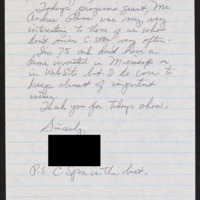 Today's program guest, Mr.
Andrew Shane was very very
interesting to those of us who
don't miss C-SPAN very often.
I'm 75 and don't have a
dime invested in Microsoft or
in WebSite but I do care to
keep abreast of important
issues.
Thank you for todays show.
Sincerely,
P.S. C-Span is the best.